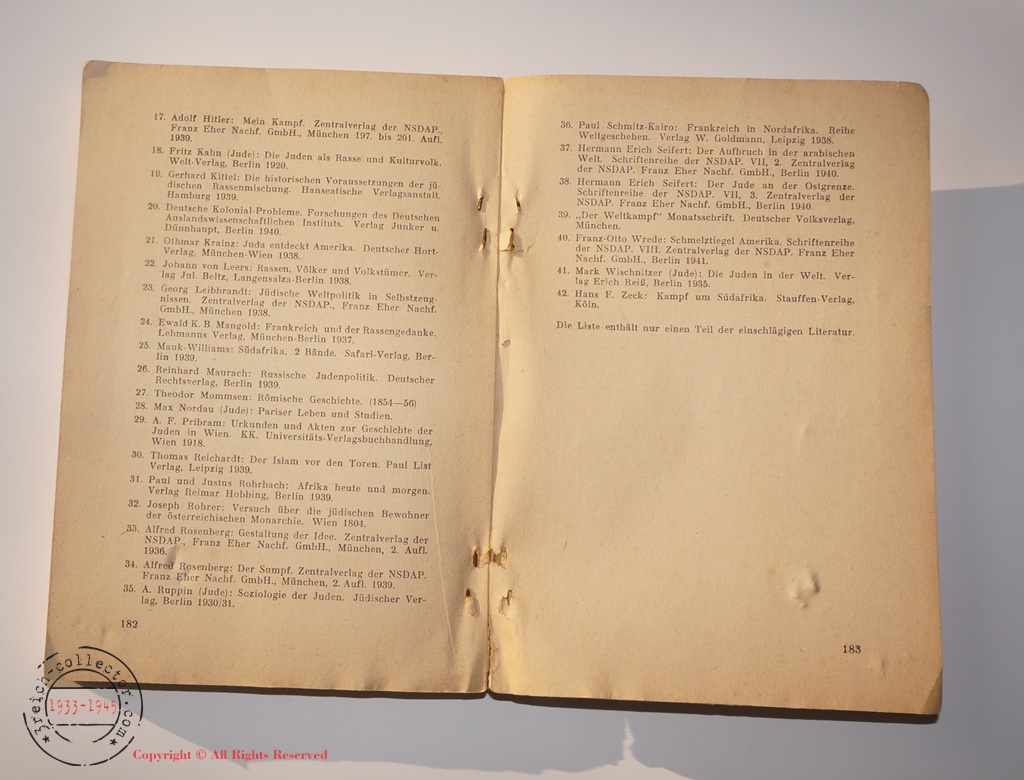 17. Adolf Hitler: Mein Kampf. Zentralverlag der NSDAP.,
Franz Eher Nachf. GmbH., München 197. bis 201. Aufl.
1939.
18. Fritz Kahn (Jude): Die Juden als Rasse und Kulturvolk.
Welt-Verlag, Berlin 1920.
19. Gerhard Kittel: Die historischen Voraussetzungen der jü-
dischen Rassenmischung. Hanseatische Verlagsanstalt.
Hamburg 1939.
20. Deutsche Kolonial-Probleme. Forschungen des Deutschen
Auslandswissenschaftlichen Instituts. Verlag Junker u.
Dünnhaupt, Berlin 1940.
21. Othmar Krainz: Juda entdeckt Amerika. Deutscher Hort-
Verlag. München-Wien 1938.
22. Johann von Leers: Rassen, Völker und Volkstümer. Ver-
lag Jul. Beltz, Langensalza-Berlin 1938.
23. Georg Leibbrandt: Jüdische Weltpolitik in Selbstzeug-
nissen. Zentralverlag der NSDAP., Franz Eher Nachf.
GmbH., München 1938.
24. Ewald K. B. Mangold: Frankreich und der Rassengedanke.
Lehmanns Verlag, München-Berlin 1937.
25. Mauk-Williams: Südafrika. 2 Bände. Safari-Verlag, Ber-
lin 1939.
26. Reinhard Maurach: Russische Judenpolitik. Deutscher
Rechtsverlag, Berlin 1939.
27. Theodor Mommsen: Römische Geschichte. (1854—56)
28. Max Nordau (Jude): Pariser Leben und Studien.
29. A. F. Pribram: Urkunden und Akten zur Geschichte der
Juden in Wien. KK. Universitäts-Verlagsbuchhandlung,
Wien 1918.
30. Thomas Reichardt: Der Islam vor den Toren. Paul List
Verlag, Leipzig 1939.
31. Paul und Justus Rohrbach: Afrika heute und morgen.
Verlag Reimar Hobbing, Berlin 1939.
32. Joseph Rohrer: Versuch über die jüdischen Bewohner
der österreichischen Monarchie. Wien 1804.
33. Alfred Rosenberg: Gestaltung der Idee. Zentralverlag der
NSDAP., Franz Eher Nachf. GmbH., München, 2. Aufl.
1936.
34. Alfred Rosenberg: Der Sumpf. Zentralverlag der NSDAP.
Franz Eher Nachf. GmbH., München, 2. Aufl. 1939.
35. A. Ruppin (Jude): Soziologie der Juden. Jüdischer Ver-
lag, Berlin 1930/31.
182
36. Paul Schmitz-Kairo: Frankreich in Nordafrika. Reihe
Weltgeschehen. Verlag W. Goldmann, Leipzig 1938.
37. Hermann Erich Seifert: Der Aufbruch in der arabischen
Welt. Schriftenreihe der NSDAP. VII, 2. Zentralverlag
der NSDAP. Franz Eher Nachf. GmbH., Berlin 1940.
38. Hermann Erich Seifert: Der Jude an der Ostgrenze.
Schriftenreihe der NSDAP. VII, 3. Zentralverlag der
NSDAP. Franz Eher Nachf. GmbH., Berlin 1940.
39. „Der Weltkampf" Monatsschrift. Deutscher Volksverlag,
München.
40. Franz-Otto Wrede: Schmelztiegel Amerika. Schriftenreihe
der NSDAP. VIII. Zentralverlag der NSDAP. Franz Eher
Nachf. GmbH., Berlin 1941.
41. Mark Wischnitzer (Jude): Die Juden in der Welt. Ver-
lag Erich Reiß, Berlin 1935.
42. Hans F. Zeck: Kampf um Südafrika. Stauffen-Verlag,
Köln.
Die Liste enthält nur einen Teil der einschlägigen Literatur.
183
3reich-collector.com
1933-1945
Copyright © All Rights Reserved